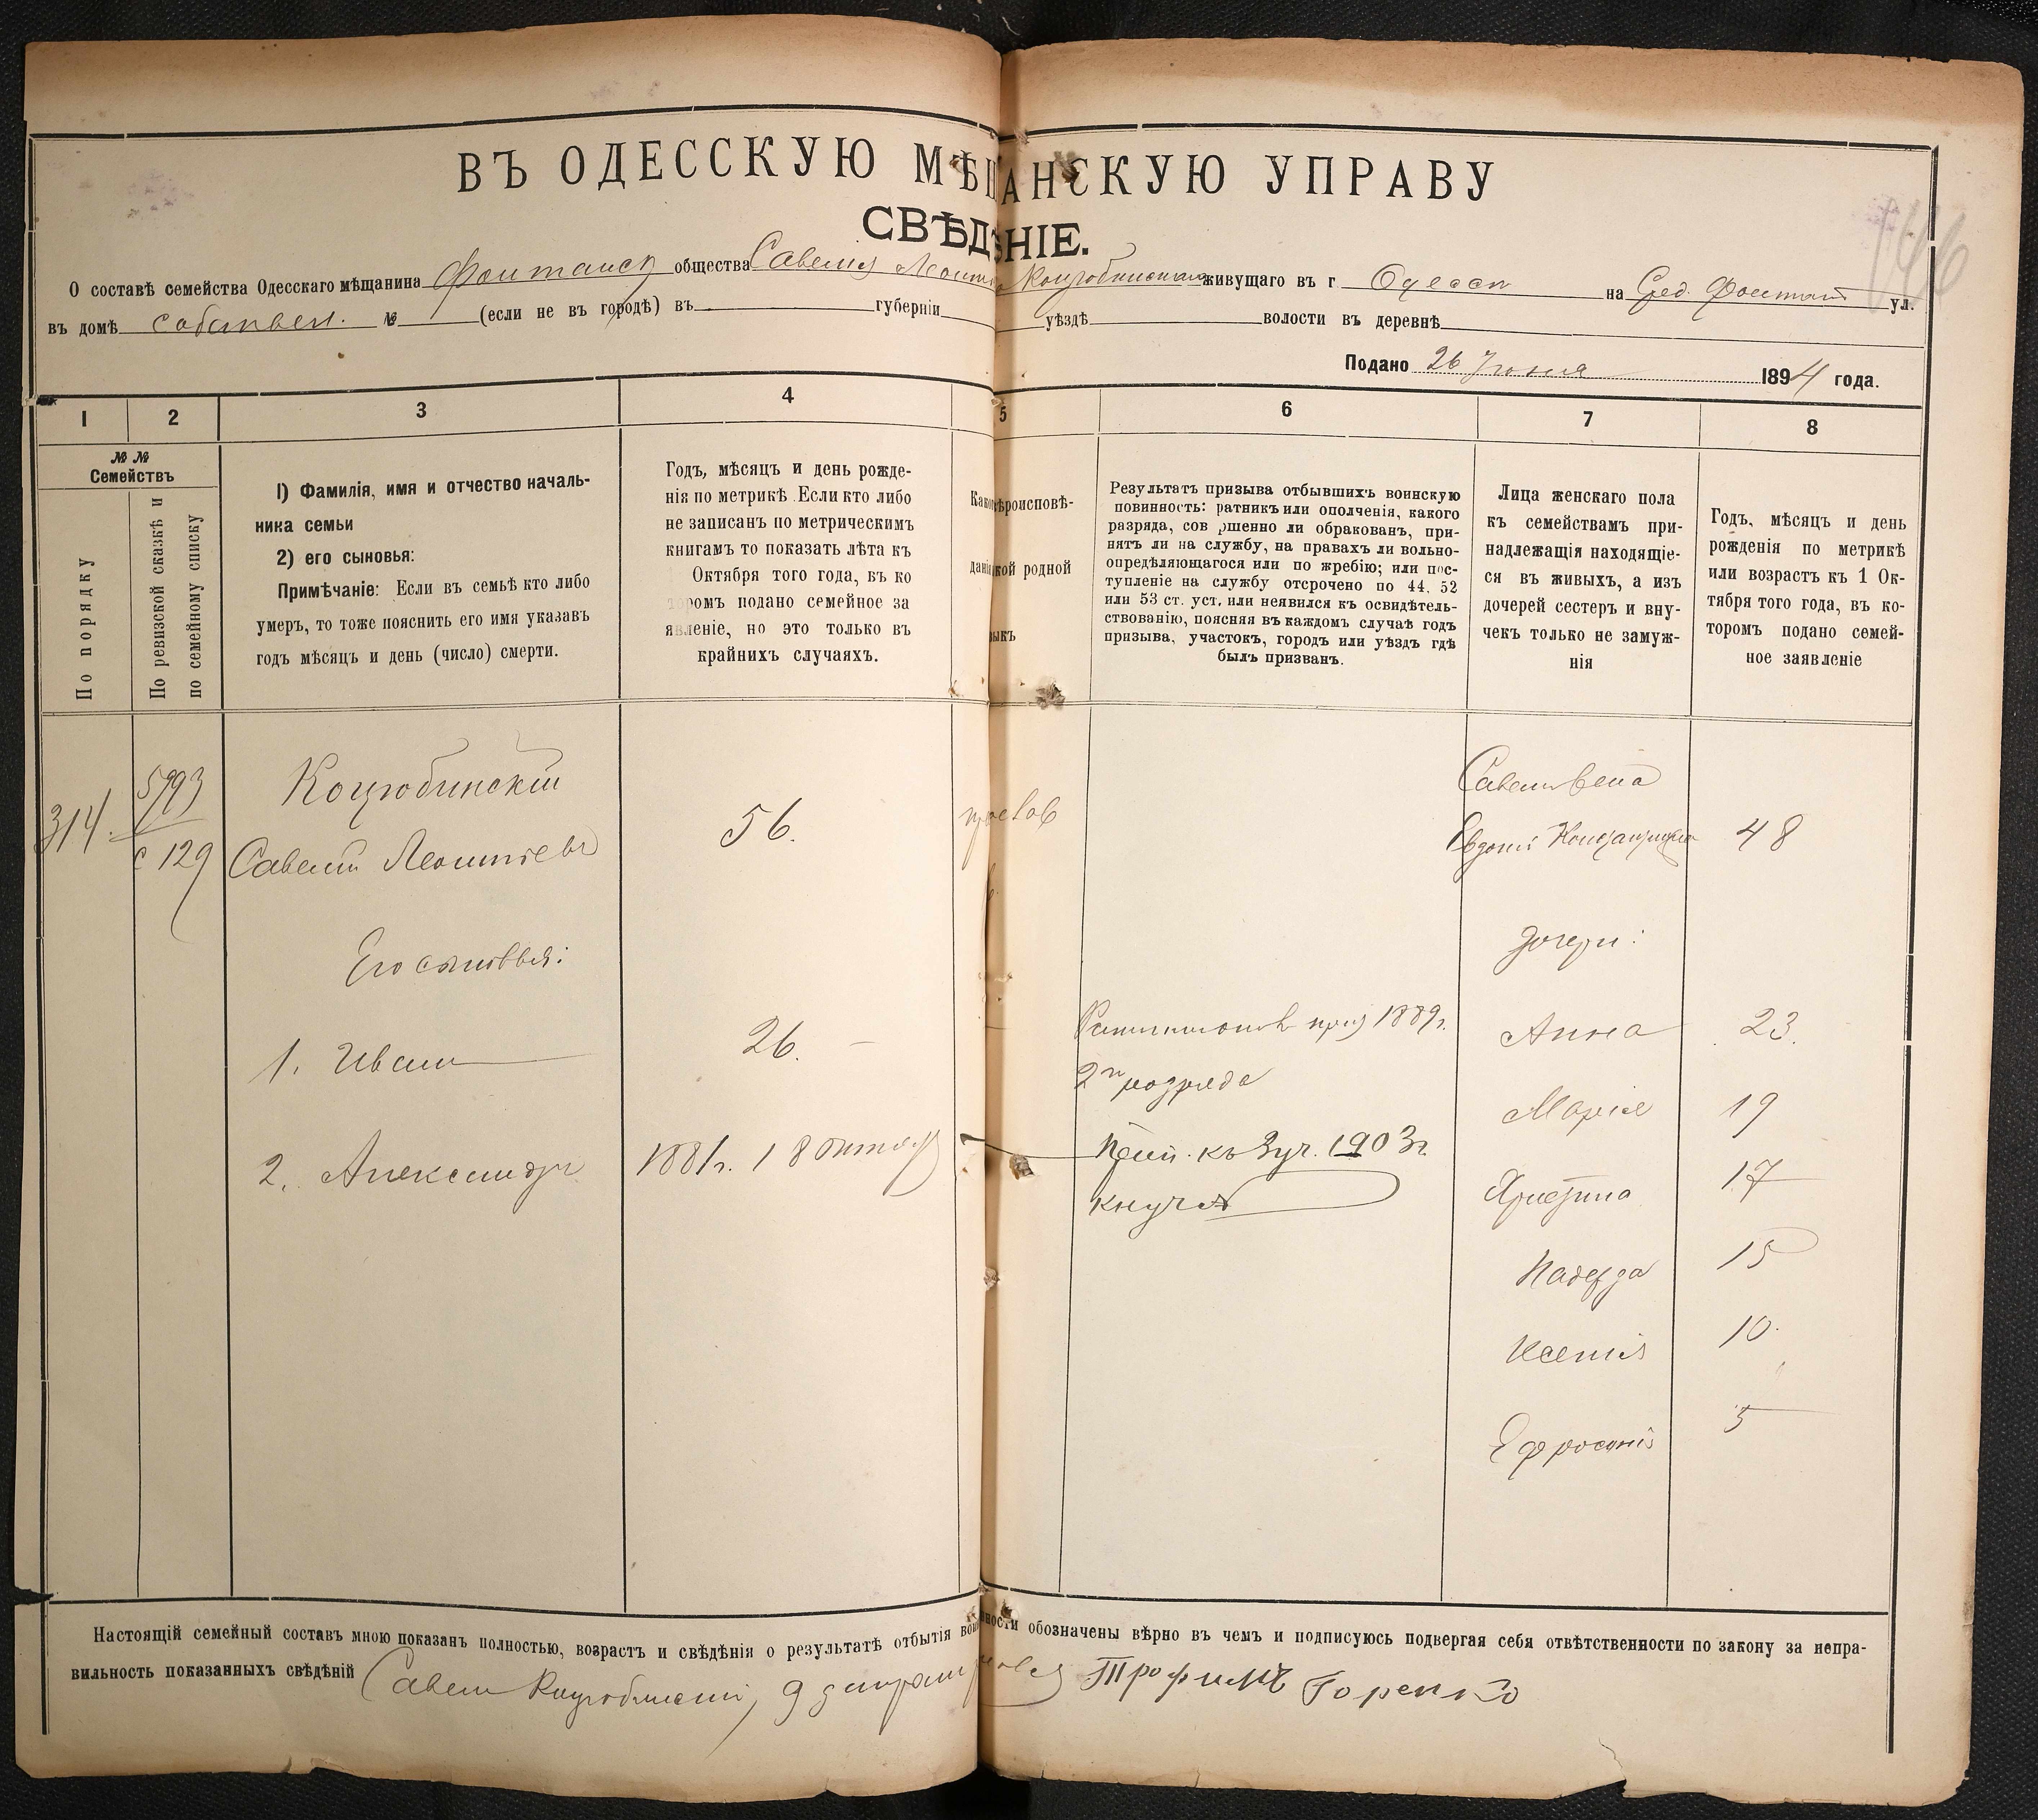 ВЪ ОДЕССКУЮ МѢЩАНСКУЮ УПРАВУ
СВѢДѢНІЕ.
О составѣ семейства Одесскаго мѣщанина Фонтанск общества Савелія Леонт Коцюбинскаго живущаго въ г Одессѣ на Сред. Фонтанѣ ул.
въ домѣ собствен. № (если не въ городѣ) въ губерніи уѣздѣ волости въ деревнѣ
Подано 26 Іюня 1894 года.
1 2 3 4 5 6 7 8
№ №
Семействъ
По порядку
По ревизской сказкѣ и
по семейному списку
1) Фамилія, имя и отчество началь-
ника семьи
2) его сыновья:
Примѣчаніе: Если въ семьѣ кто либо
умеръ, то тоже пояснить его имя указавъ
годъ мѣсяцъ и день (число) смерти.
Годъ, мѣсяцъ и день рожде-
нія по метрикѣ. Если кто либо
не записанъ по метрическимъ
книгамъ то показать лѣта къ
Октября того года, въ ко
торомъ подано семейное за
явленіе, но это только въ
крайнихъ случаяхъ.
Како вѣроисповѣ-
дані кой родной
ыкъ
Результатъ призыва отбывшихъ воинскую
повинность: ратникъ или ополченія, какого
разряда, сов ршенно ли обракованъ, при-
нятъ ли на службу, на правахъ ли вольно-
опредѣляющагося или по жребію; или пос-
тупленіе на службу отсрочено по 44, 52
или 53 ст. уст. или неявился къ освидѣтель-
ствованію, поясняя въ каждомъ случаѣ годъ
призыва, участокъ, городъ или уѣздъ гдѣ
былъ призванъ.
Лица женскаго пола
къ семействамъ при-
надлежащія находящіе-
ся въ живыхъ, а изъ
дочерей сестеръ и вну-
чекъ только не замуж-
нія
Годъ, мѣсяцъ и день
рожденія по метрикѣ
или возрастъ къ 1 Ок-
тября того года, въ ко-
торомъ подано семей-
ное заявленіе
314. 5793 Коцюбинскій
с 129 Савелій Леонтіевъ 56. правов
Савельева
Евдокія 48
Его сыновья:
дочери:
1. Иванъ 26. – приз 1889г.
2го разряда
Анна 23.
Марія 19
2. Александръ 1881г. 18 Октяб
къ 3уч. 1903г.
Христина 17
Надежда 15
Ксенія 10.
Ефросинія 5
Настоящій семейный составъ мною показанъ полностью, возрастъ и свѣдѣнія о результатѣ отбытія вои нности обозначены вѣрно въ чемъ и подписуюсь подвергая себя отвѣтственности по закону за непра-
вильность показанныхъ свѣдѣній Савели Коцюбинскій, Трофимъ Горенко